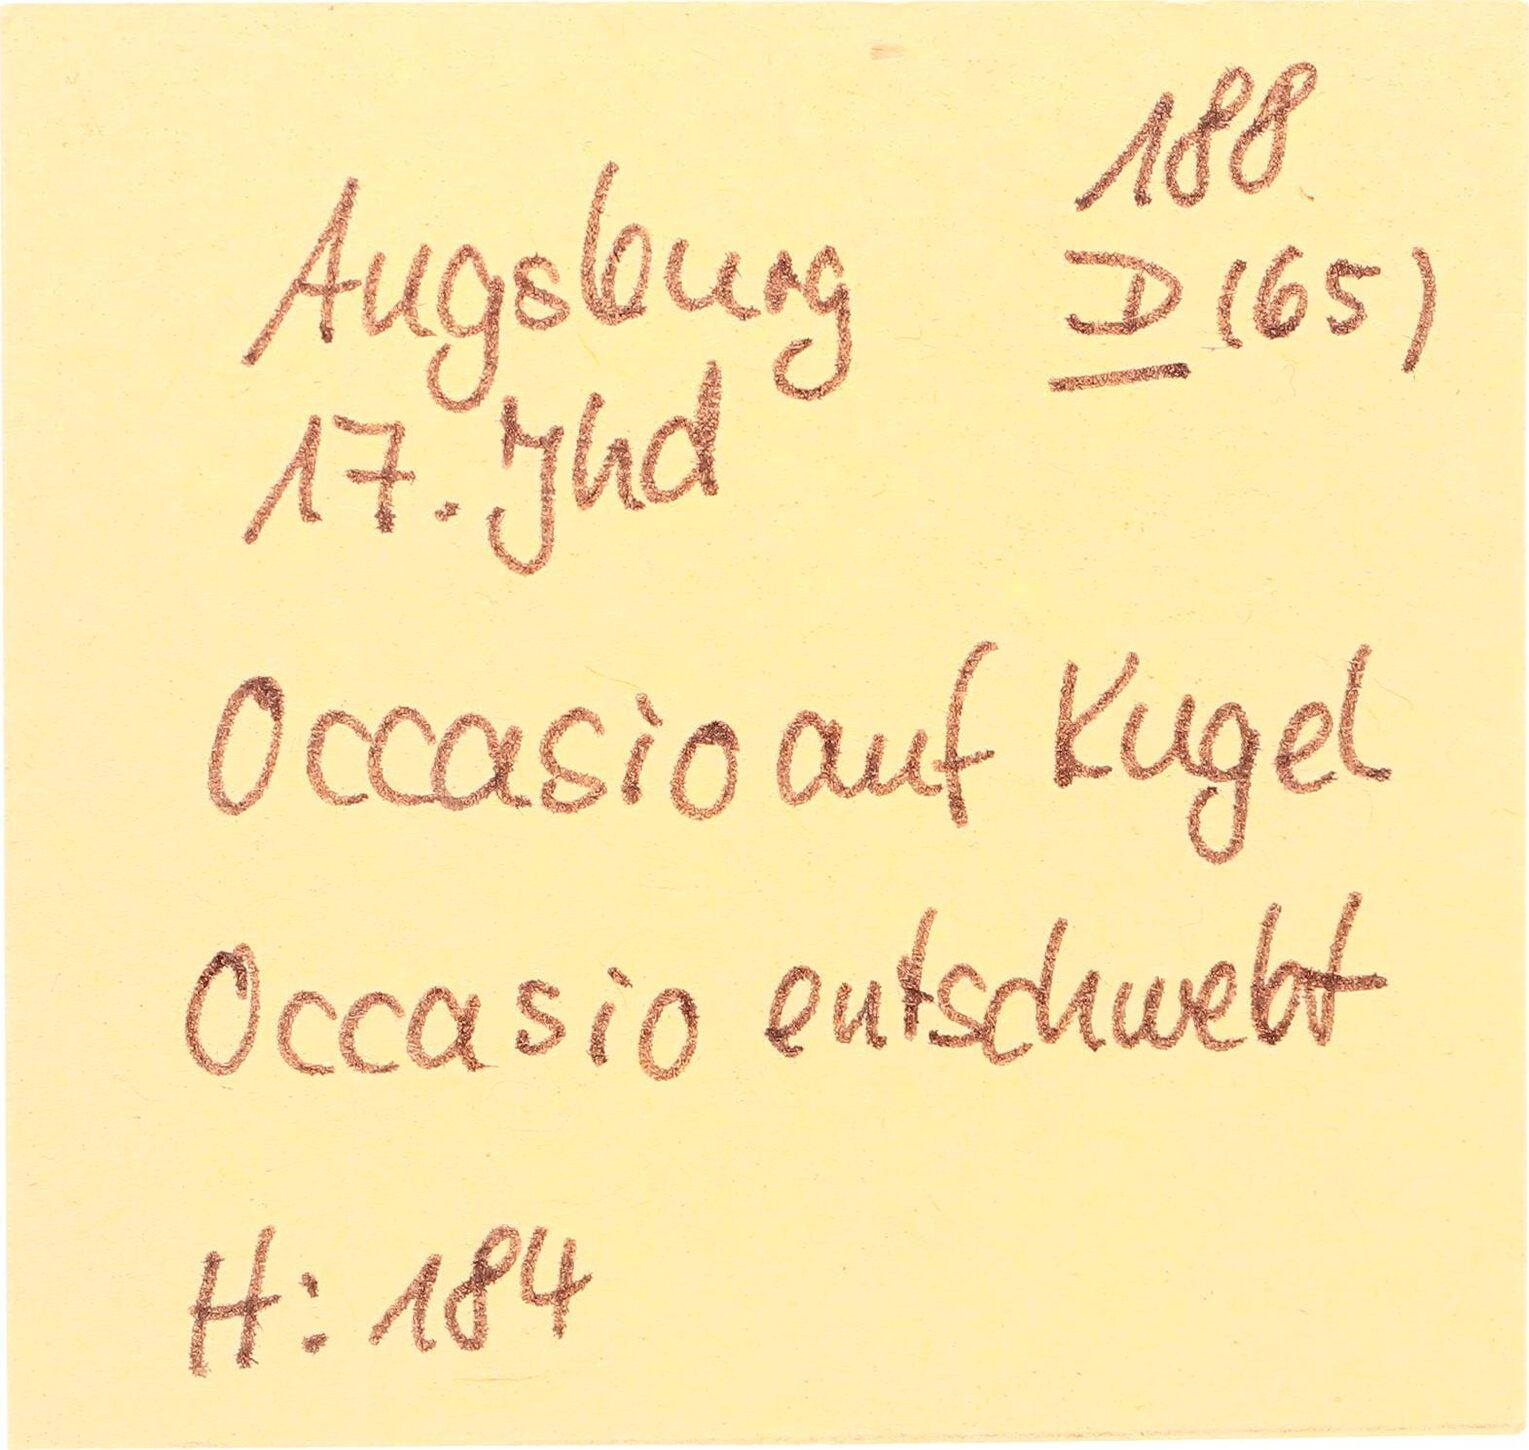 188
Augsburg D (65)
17. Jhd
Occasio auf Kugel
Occasio entschwebt
H: 184